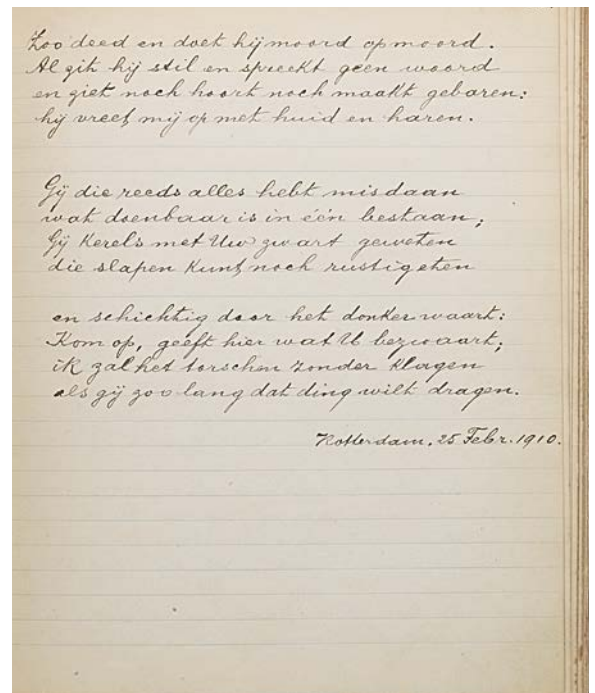 Zoo deed en doet hij moord op moord.
Al zit hij stil en spreekt geen woord
en ziet noch hoort noch maakt gebaren:
hij vreet mij op met huid en haren.
Gij die reeds alles hebt misdaan
wat doenbaar is in één bestaan,
Gij Kerels met Uw zwart geweten
die slapen Kunt noch rustig eten
en schichtig door het donker waart:
Kom op, geeft hier wat U bezwaart;
ik zal het torschen zonder klagen
als gij zoo lang dat ding wilt dragen.
Rotterdam, 25 Febr. 1910.